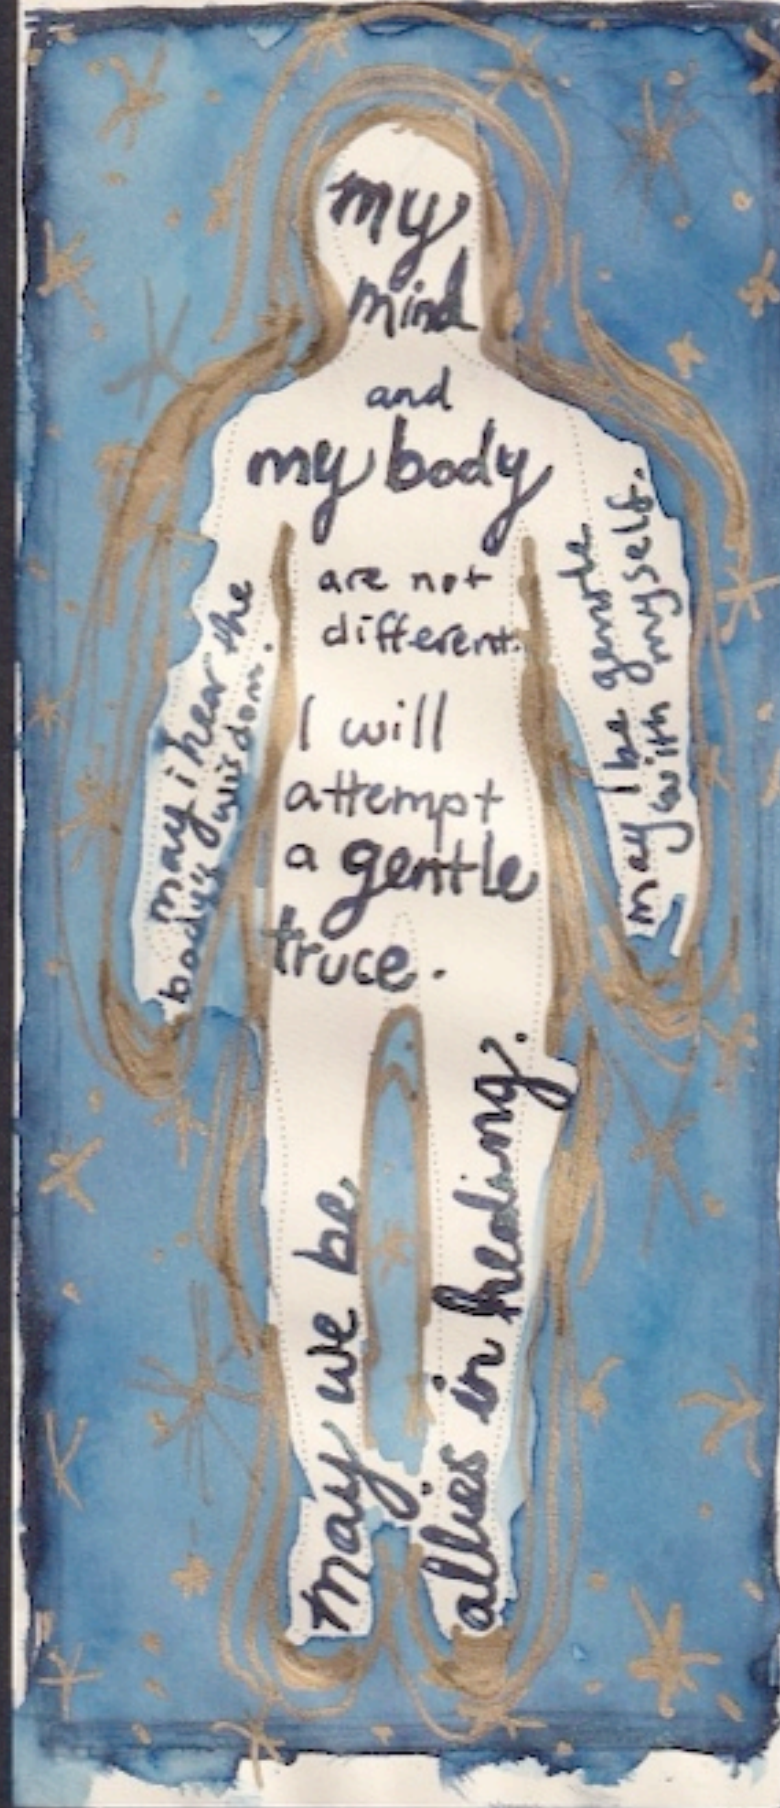 my
mind
and
my body
are not
different.
I will
attempt
a gentle
truce.
may i hear the
body's wisdom.
may I be gentle
with myself.
may we be
allies in healing.